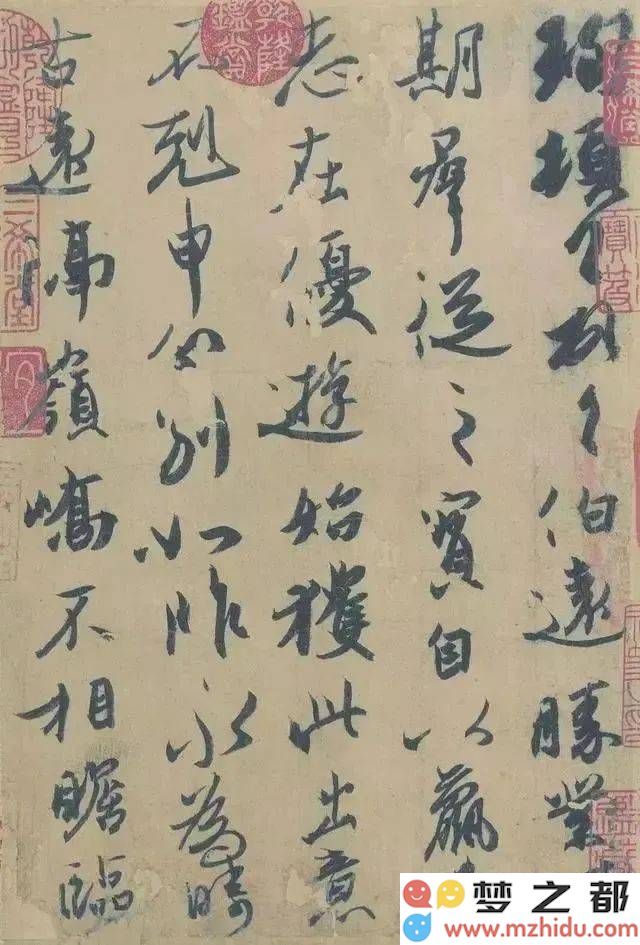 珣頓首頓首伯遠勝業
期羣從之寶自以羸
志在優遊始獲此出意
不剋申分別如昨永為疇
古遠隔嶺嶠不相瞻臨
乾隆鑑賞
三希堂
梦之都
www.mzhidu.com